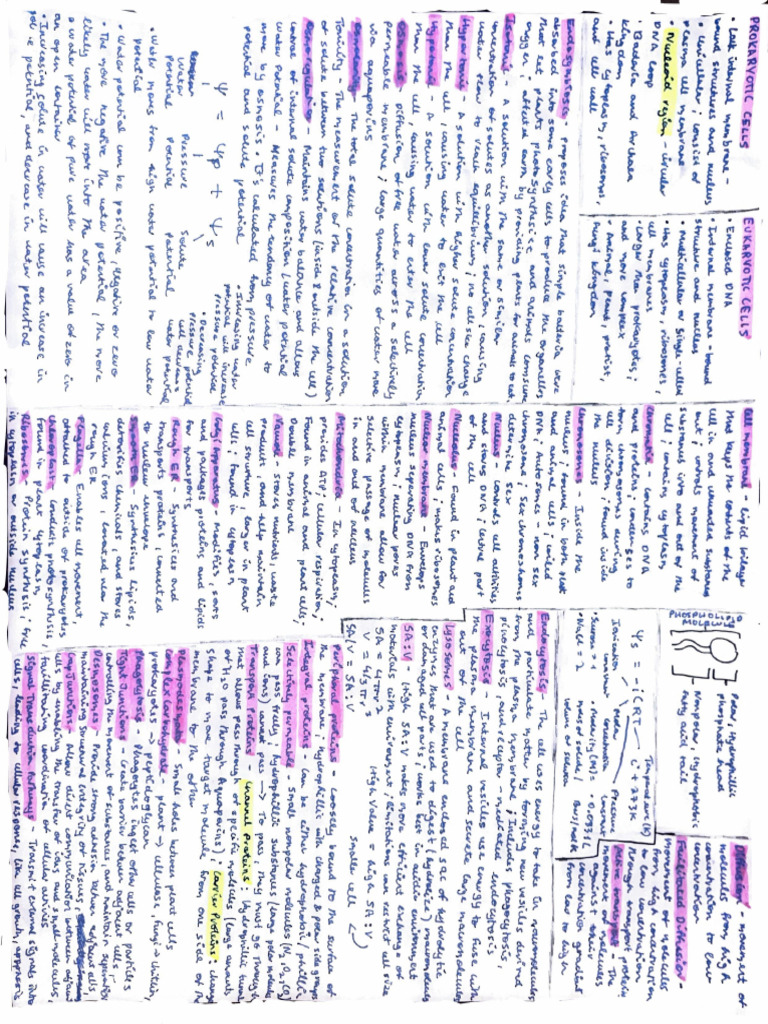 PROKARYOTIC CELLS
• Lack internal membrane -
bound structures and nucleus
• Unicellular; consist of
plasma cell membrane
• Nucleoid region - circular
DNA loop
• Bacteria and Archaea
kingdom
• Has cytoplasm, ribosomes,
and cell wall
EUKARYOTIC CELLS
• Enclosed DNA
• Internal membrane-bound
structure and nucleus
• Multicellular or Single-celled
• Has cytoplasm, ribosomes,
cell membranes
• Larger than prokaryotes;
and more complex
• Animal, plant, protist,
fungi kingdom
Endosymbiosis - Proposes idea that simple bacteria were
absorbed into some early cells to produce the organelles
that let plants photosynthesise and animals consume
oxygen; altered earth by providing plants for animals to eat
Isotonic - A solution with the same or similar
concentration of solutes as another solution, causing
water flow to reach equilibrium; no cell size change
Hypertonic - A solution with higher solute concentration
than the cell, causing water to exit the cell
Hypotonic - A solution with lower solute concentration
than the cell, causing water to enter the cell
Osmosis - Diffusion of free water across a selectively
permeable membrane; large quantities of water move
via aquaporins
Osmolarity - The total solute concentration in a solution
Tonicity - The measurement of the relative concentration
of solute between two solutions (inside & outside the cell)
Osmoregulation - Maintains water balance and allows
control of internal solute composition / water potential
Water Potential - Measures the tendency of water to
move by osmosis. It's calculated from pressure
potential and solute potential
Ψ = Ψp + Ψs
Water Potential
Pressure Potential
Solute Potential
• Increasing water
potential will increase
pressure potential
• Decreasing
pressure potential
will decrease
water potential
• Water moves from high water potential to low water
potential
• Water potential can be positive, negative or zero
• The more negative the water potential, the more
likely water will move into the area
• Water potential of pure water has a value of zero in
an open container
• Increasing solute in water will cause an increase in
solute potential, and decrease in water potential
Cell membrane - Lipid bilayer
that keeps the contents of the
cell in and unwanted substances
out; controls movement of
substances into and out of the
cell; contains cytoplasm
Chromatin - Contains DNA
and proteins; condenses to
form chromosomes during
cell division; found inside
the nucleus
Chromosomes - Inside the
nucleus; found in both plant
and animal cells; coiled
DNA; Autosomes - non sex
chromosome; Sex chromosomes
determine sex
Nucleus - Controls cell activities
and stores DNA; centre part
of the cell
Nucleolus - Found in plant and
animal cells; makes ribosomes
Nuclear membrane - Envelops
nucleus separating DNA from
cytoplasm; nuclear pores
within membrane allow for
selective passage of molecules
in and out of nucleus
Mitochondria - In cytoplasm;
provides ATP; cellular respiration;
found in animal and plant cells;
double membrane
Vacuole - Stores nutrients, waste
products, and help maintain
cell structure; larger in plant
cells; found in cytoplasm
Golgi Apparatus - Modifies, sorts
and packages proteins and lipids
for transports
Rough ER - Synthesises and
transports proteins; connected
to nuclear envelope
Smooth ER - Synthesises lipids,
detoxifies chemicals, and stores
calcium ions; located near the
rough ER
Flagella - Enables cell movement;
attached to outside of prokaryotes
Chloroplast - Conducts photosynthesis
found in plant cytoplasm
Ribosomes - Protein synthesis; free
in cytoplasm or outside nucleus
PHOSPHOLIPID
MOLECULE
Polar, Hydrophilic
phosphate head
Nonpolar, hydrophobic
fatty acid tail
Ψs = -iCRT
Temperature (K)
°C + 273K
Pressure constant
• 0.0831 L bars/mol K
Molar concentration
• Molarity (M) =
moles of solute /
volume of solution
Ionization constant
• Sucrose = 1
• NaCl = 2
Diffusion - movement of
molecules from high
concentration to low
concentration
Facilitated Diffusion -
Movement of molecules
from high concentration
to low concentration
through transport proteins
Active transport - The
movement of molecules
against their
concentration gradient
from low to high
Endocytosis - The cell uses energy to take in macromolecules
and particulate matter by forming new vesicles derived
from the plasma membrane; includes phagocytosis,
pinocytosis, and receptor-mediated endocytosis
Exocytosis - Internal vesicles use energy to fuse with
the plasma membrane and secrete large macromolecules
out of the cell
Lysosomes - A membrane enclosed sac of hydrolytic
enzymes that are used to digest (hydrolise) macromolecules
or damaged cell parts; works best in acidic environment
SA:V - High SA:V makes more efficient exchange of
molecules with environment; limitations can restrict cell size
SA = 4πr²
V = 4/3πr³
SA/V = SA:V
High Value = high SA:V
Smaller cell
Peripheral proteins - Loosely bound to the surface of
the membrane; hydrophilic with charged & polar side groups
Integral proteins - can be either hydrophobic/philic
Selectively permeable - Small nonpolar molecules (N₂, O₂, CO₂)
can pass freely; hydrophilic substances (large polar molecules
ions) cannot pass → To pass, they must go through
Transport proteins - Channel proteins: Hydrophilic tunnels
that allow pass through of specific molecules (large amounts
of H₂O pass through Aquaporins); Carrier Proteins: change
shape to move target molecule from one side of the
membrane to the other
Plasmodesmata - Small holes between plant cells
Complex carbohydrate - plant → cellulose, fungi → chitin,
prokaryotes → peptidoglycan
Phagocytosis - Phagocytes ingest other cells or particles
Tight Junctions - Create barrier between adjacent cells,
controlling the movement of substances, and maintain separation
Desmosomes - Provide strong adhesion between adjacent cells,
maintaining structural integrity of tissues
Gap Junctions - Allow direct communication between adjacent
cells by enabling the transfer of ions and small molecules,
facilitating coordination of cellular activities
Signal Transduction Pathways - Transmit external signals into
cells, leading to cellular response, like cell growth, apoptosis